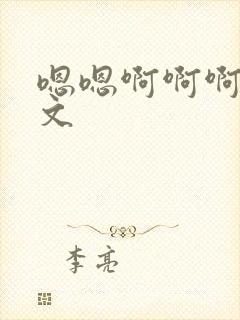 嗯嗯啊啊啊
文
李亮